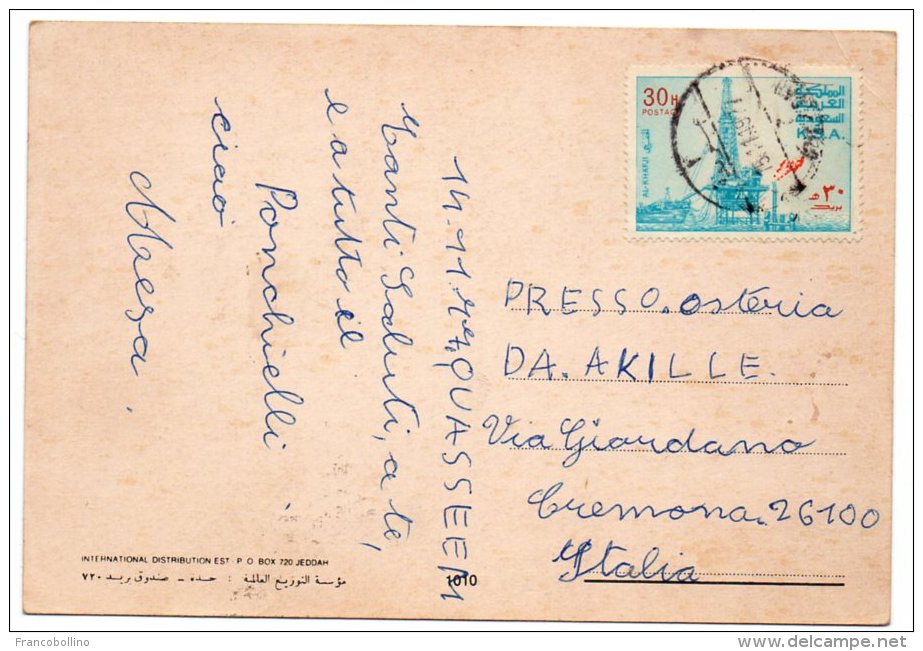 14.11.77. QUASSEEM
Tanti Saluti, a te,
e a tutto il
Ponchielli.
ciao
Maesa.
30H
POSTAGE
المملكة
العربية
السعودية
K.S.A.
AL-KHAFJI
الخفجي
٣٠ هـ
بريد
PRESSO. osteria
DA. AKILLE.
Via Giordano
Cremona. 26100
Italia
INTERNATIONAL DISTRIBUTION EST · P. O. BOX 720 JEDDAH
مؤسسة التوزيع العالمية : جدة - صندوق بريد ٧٢٠
1010
Francobollino
www.delcampe.net